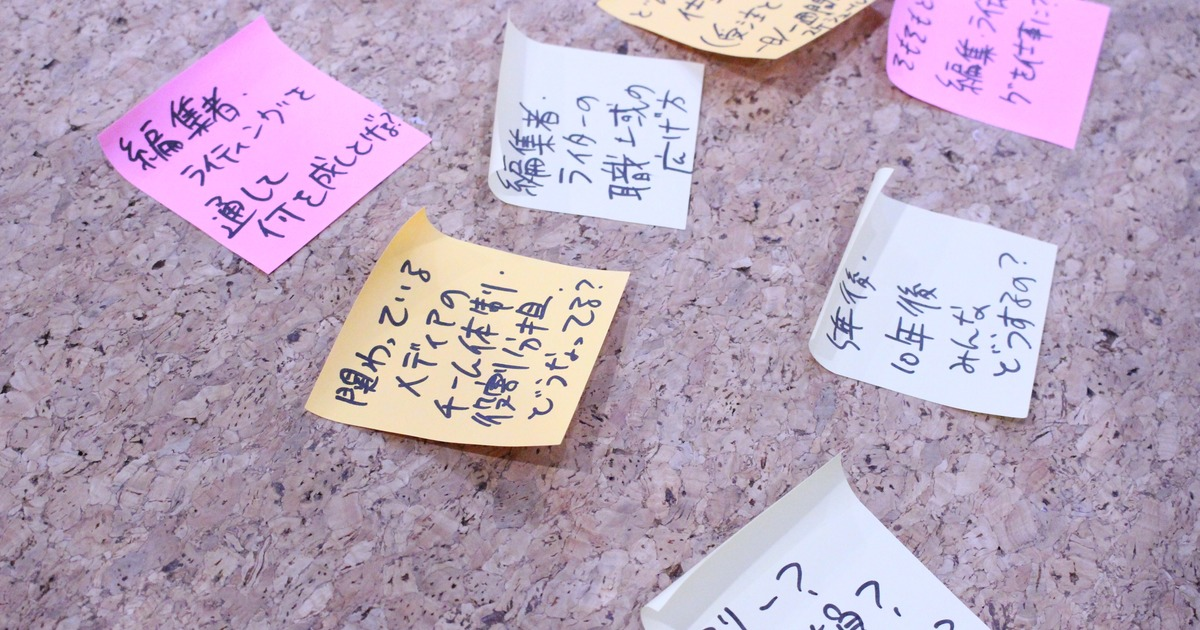 編集者・
ライティングを
通して
何を成しとげる?
編集者・
ライターの
職域の
広げ方
仕
(受注と
そもそも
編集・ライ
グを仕事に
関わっている
メディアの
チーム体制・
役割分担
どうなってる?
5年後・
10年後
みんな
どうするの?
リー?